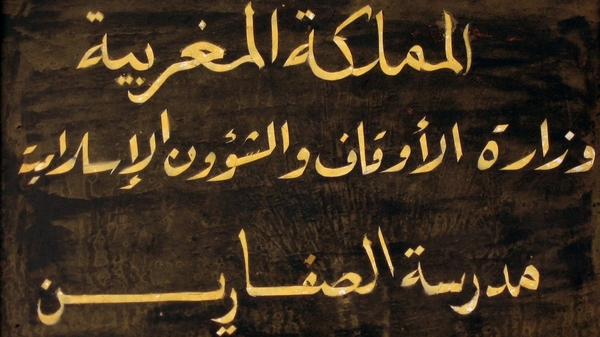 المملكة المغربية
وزارة الأوقاف والشؤون الإسلامية
مدرسة الصفارين